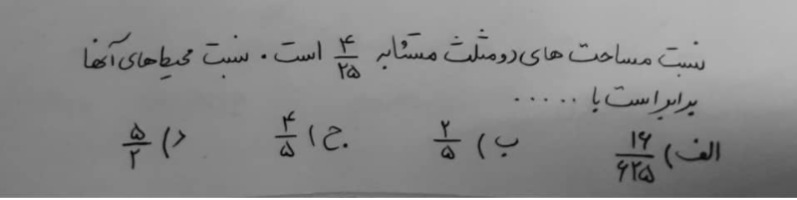 نسبت مساحت های دو مثلث متشابه ۴/۲۵ است. نسبت محیط های آنها
برابر است با .....
الف) ۱۶/۶۲۵ ب) ۲/۵ ج) ۴/۵ د) ۵/۲